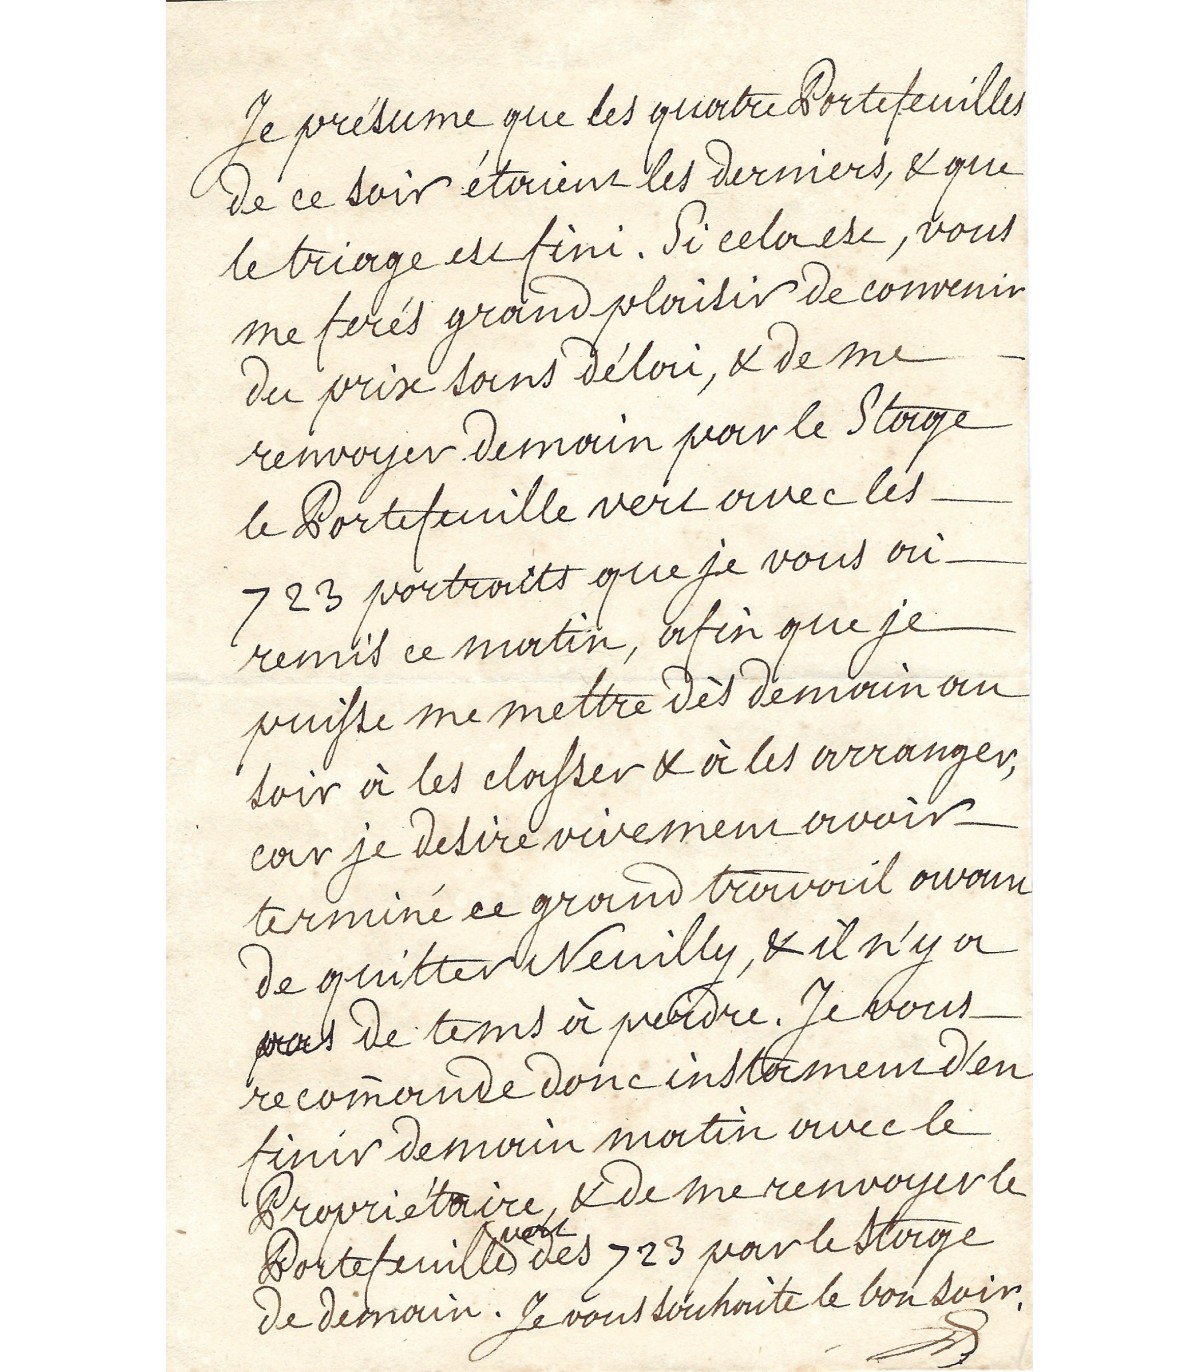 Je présume que les quatre Portefeuilles
de ce soir étaient les derniers, & que
le triage est fini. Si cela est, vous
me ferés grand plaisir de convenir
du prix sans délai, & de me —
renvoyer demain par le Stage
le Portefeuille vert avec les —
723 portraits que je vous ai —
remis ce matin, afin que je
puisse me mettre dès demain au
soir à les classer & à les arranger,
car je desire vivement avoir
terminé ce grand travail avant
de quitter Neuilly, & il n'y a
pas de tems à perdre. Je vous
recom̄ande donc instament d'en
finir demain matin avec le
Propriétaire, & de me renvoyer le
vert
Portefeuille des 723 par le Stage
de demain. Je vous souhaite le bon soir.